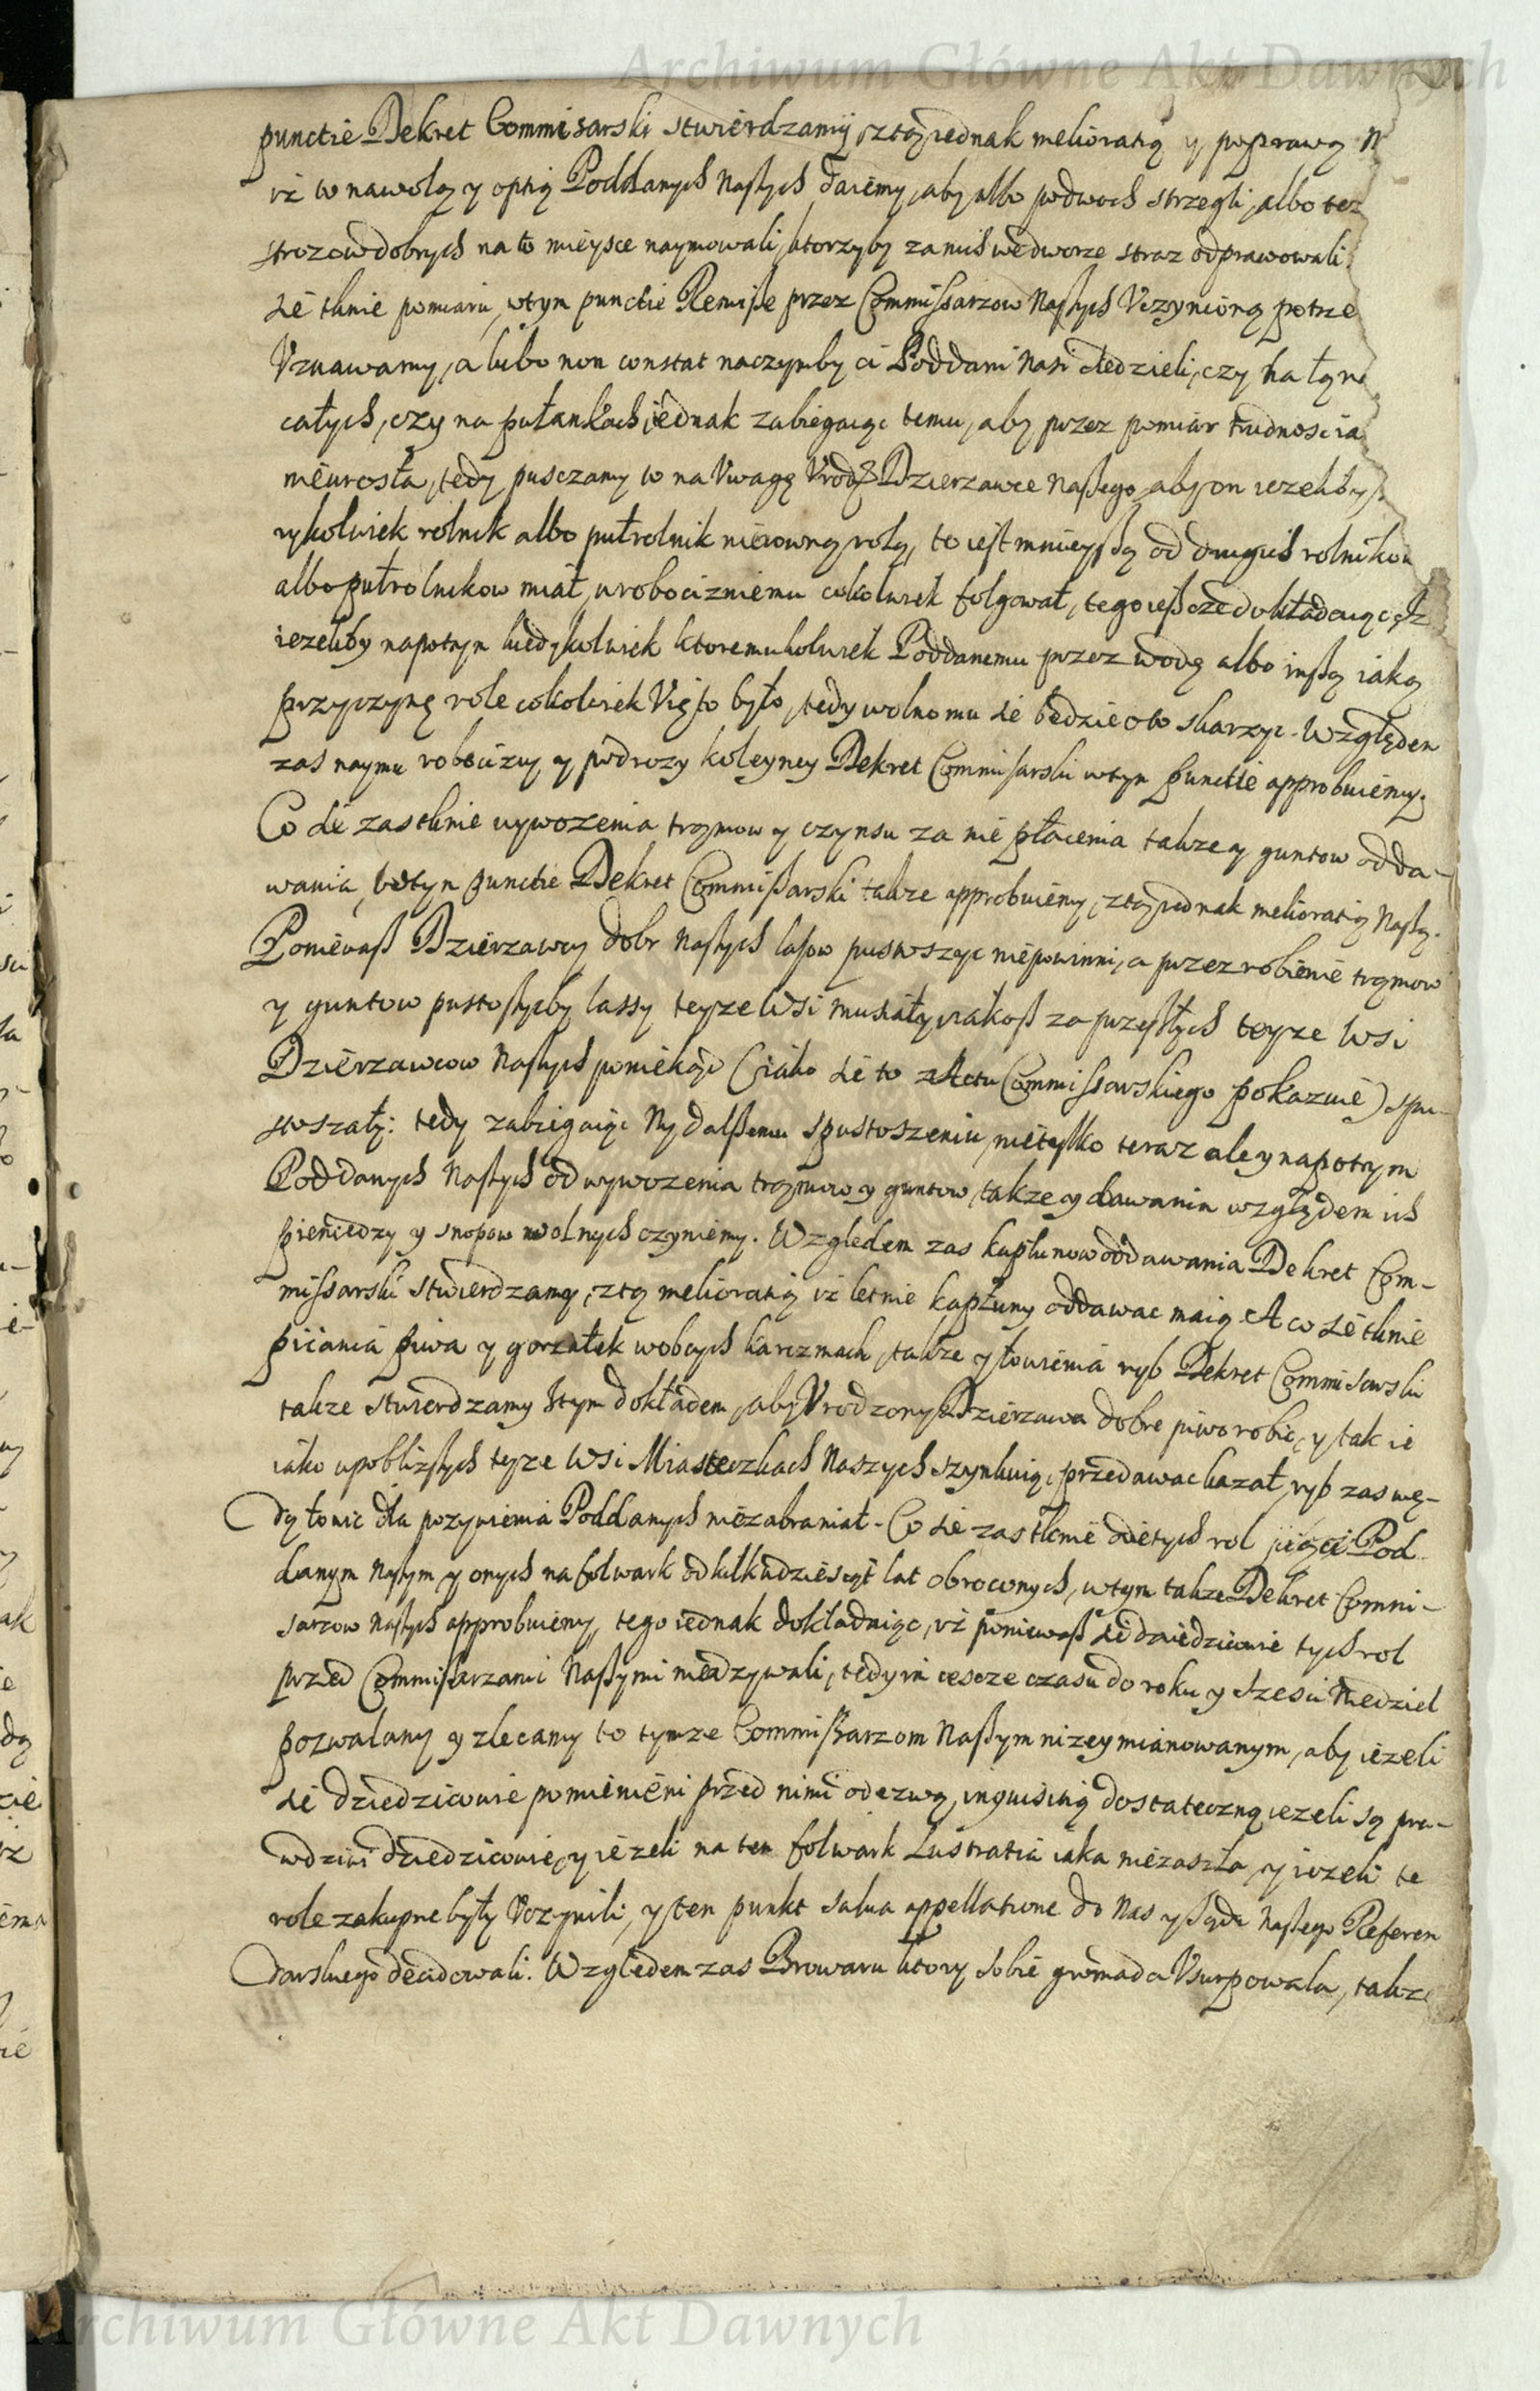 Archiwum Główne Akt Dawnych
punctie Dekret Commisarski stwierdzamy, z tą iednak melioratią y poprawą
iż to na wolą y optią Poddanych Naszych daiemy, aby albo po dwoch strzegli, albo tez
strozow dobrych na to mieysce naymowali, ktorzyby za nich we dworze straz odprawowali.
sie tknie pomiaru, w tym punctie Remisse przez Commissarzow Naszych Uczynioną
Uznawamy, a lubo non constat na czymby ci Poddani Nasi siedzieli, czy na
całych, czy na pułankach, iednak zabiegaiąc temu, aby przez pomiar trudnoscia
nieurosła, tedy pusczamy to na Uwagę Urodz. Dzierzawce Naszego, aby on iezeliby
rykolwiek rolnik albo pułrolnik nierowną rolą, to iest mnieyszą od drugich rolnikow
albo pułrolnikow miał, w robociznie mu cokolwiek folgował, tego ieszcze dokładaiąc
iezeliby napotym kiedykolwiek ktoremukolwiek Poddanemu przez wodę albo inszą iaką
przyczynę role cokolwiek Uięto było, tedy wolno mu sie będzie o to skarzyc. Względem
zas naymu robocizny y podrozy koleyney Dekret Commisarski w tym punctie approbuiemy.
Co sie zas tknie wywozenia tramow y czynsu za nie płacenia takze y guntow odda-
wania, w tym punctie Dekret Commissarski takze approbuiemy, z tą iednak melioratią Naszą.
Poniewasz Dzierzawcy dobr Naszych lasow pustoszyc niepowinni, a przez robienie tramow
y guntow pustoszycby lassy teyze Wsi musiały, iakosz za przeszłych teyze Wsi
Dzierzawcow Naszych poniekąd (iako sie to z Actu Commissarskiego pokazuie) spu-
stoszały: tedy zabiegaiąc My dalszemu spustoszeniu, nietylko teraz ale y napotym
Poddanych Naszych od wywozenia tramow y guntow, takze y dawania względem ich
pieniedzy y snopow wolnych czyniemy. Względem zas kapłunow oddawania Dekret Com-
missarski stwierdzamy, z tą melioratią iz letnie kapłuny oddawac maią. A co sie tknie
picia piwa y gorzałek w obcych karczmach, takze y łowienia ryb Dekret Commisarski
takze stwierdzamy z tym dokładem, aby Urodzony Dzierzawca dobre piwo robic, y tak ie
iako w pobliższych teyze Wsi Miasteczkach Naszych szynkuią, przedawac kazał, ryb zas wę-
dą łowic dla pozywienia Poddanych niezabraniał. Co sie zas tknie wzietych rol pięci Pod-
danym Naszym y onych na folwark od kilkudziesiąt lat obroconych, w tym takze Dekret Commi-
sarzow Naszych approbuiemy, tego iednak dokładaiąc, iż poniewasz sie dziedzicowie tych rol
przed Commissarzami Naszymi nieodzywali, tedy im iescze czasu do roku y szesci Niedziel
pozwalamy y zlecamy to tymze Commissarzom Naszym nizey mianowanym, aby iezeli
sie dziedzicowie pomienieni przed nimi odezwą, inquisitią dostateczną iezeli są pra-
wdziwi dziedzicowie, y iezeli na ten folwark Lustratia iaka niezaszła, y iezeli te
role zakupne były Uczynili, y ten punkt salva appellatione do Nas y sądu Naszego Referen
darskiego decidowali. Względem zas Browaru ktory sobie gromada Usurpowała, takze
Archiwum Główne Akt Dawnych